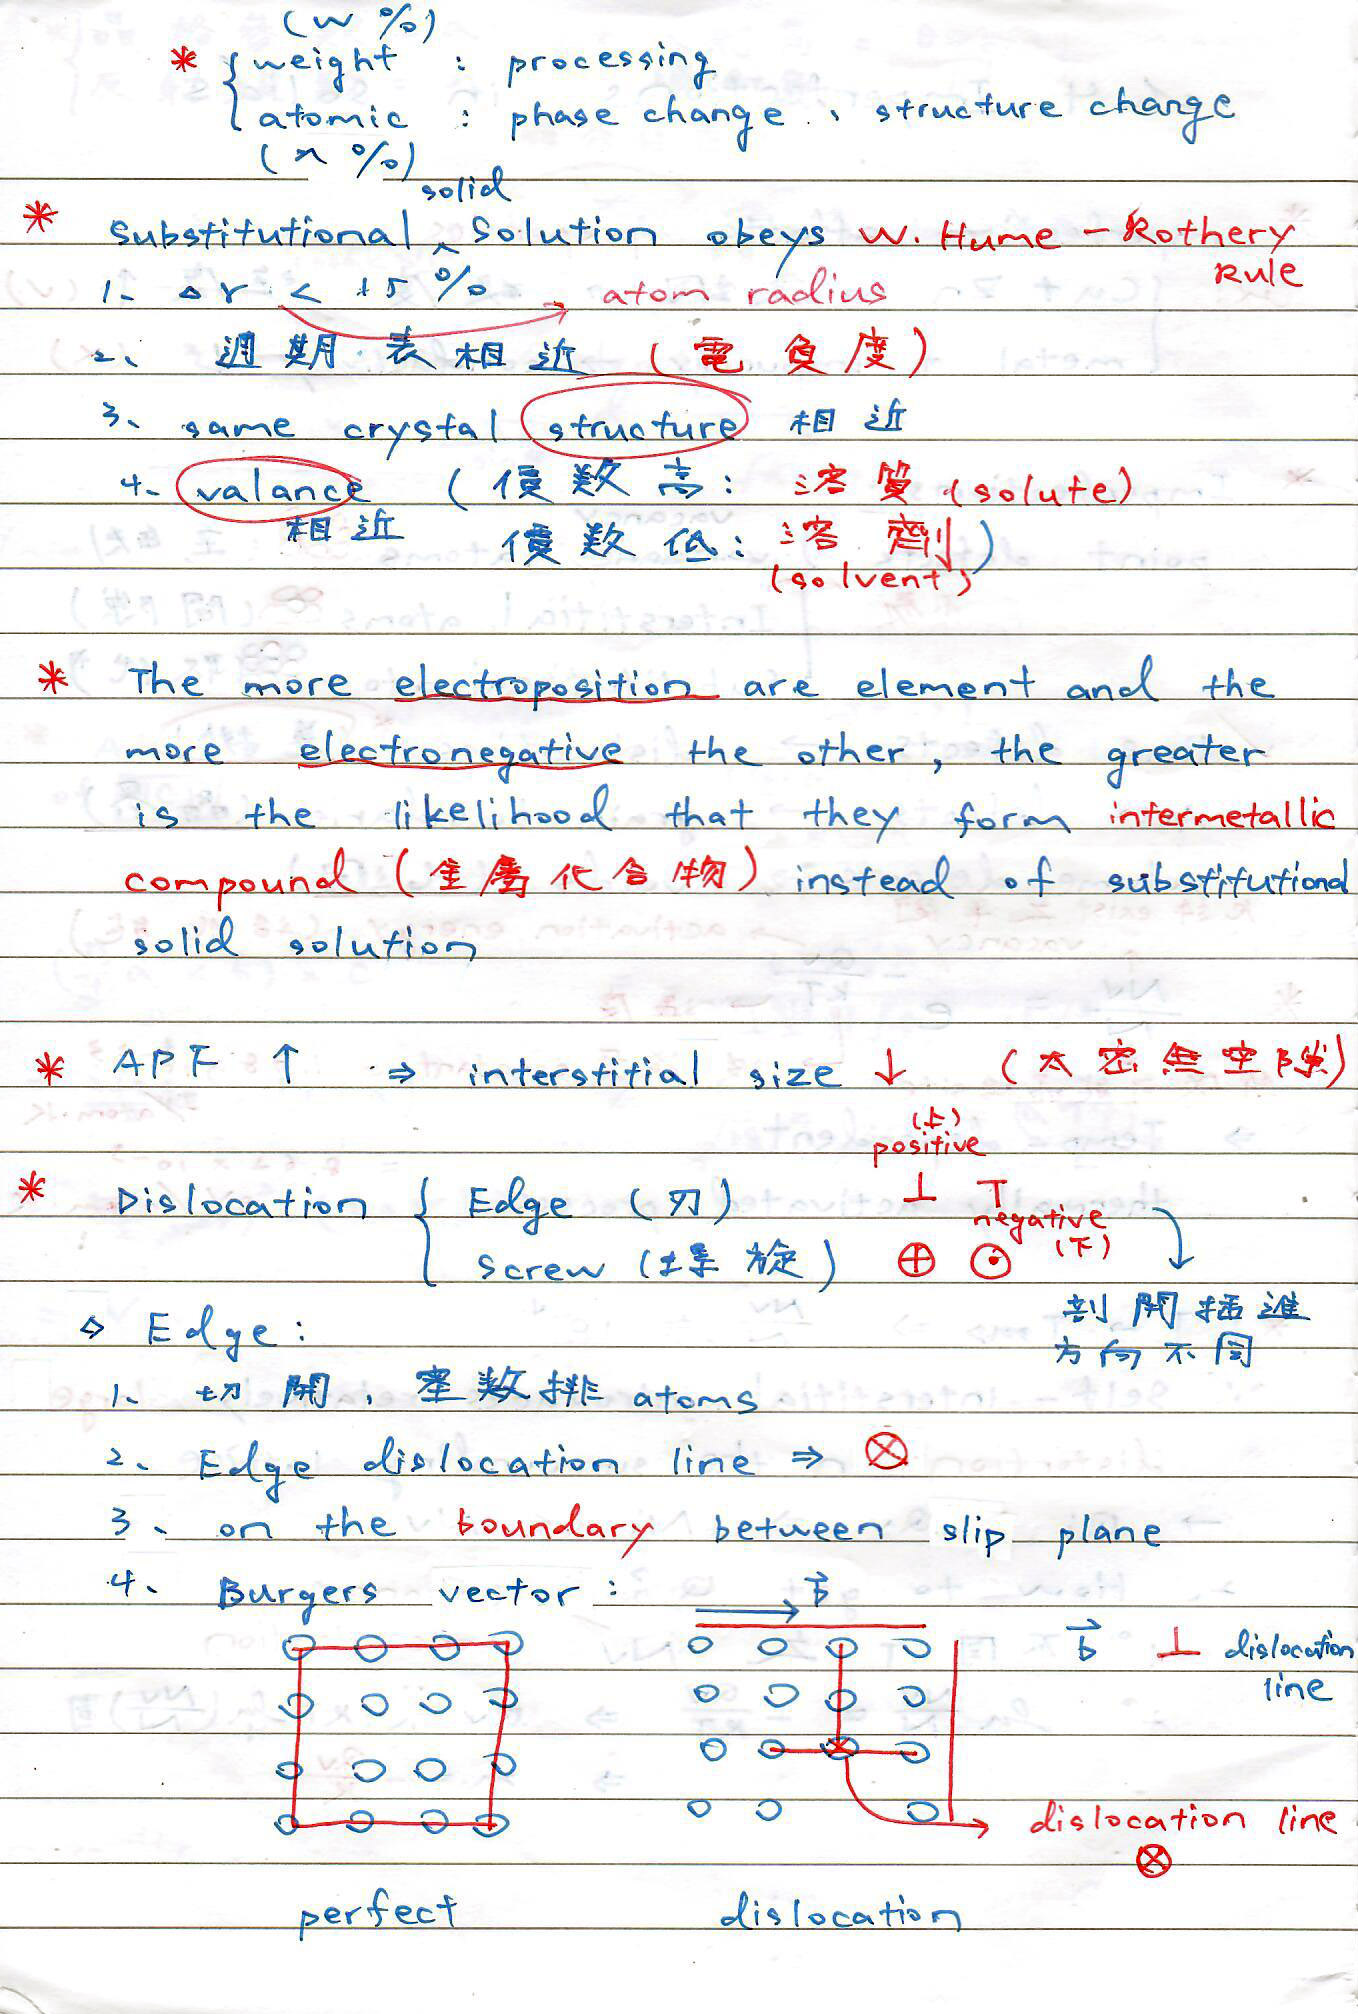 (w %)
* { weight : processing
atomic : phase change 、 structure change
(n %)
solid
* Substitutional ^ Solution obeys W. Hume - Rothery
Rule
1、 Δr < 15 % → atom radius
2、 週期表相近 (電負度)
3、 same crystal structure 相近
4、 valance (價數高: 溶質 (solute)
相近 價數低: 溶劑)
(solvent)
* The more electroposition are element and the
more electronegative the other, the greater
is the likelihood that they form intermetallic
compound (金屬化合物) instead of substitutional
solid solution
* APF ↑ ⇒ interstitial size ↓ (太密無空隙)
(上)
positive
* Dislocation { Edge (刃) ⊥ ⊤
negative
(下)
Screw (螺旋) ⊕ ⊙
剖開插進
方向不同
◇ Edge:
1、 切開, 整數排 atoms
2、 Edge dislocation line ⇒ ⊗
3、 on the boundary between slip plane
4、 Burgers vector: b⃗
b⃗ ⊥ dislocation
line
dislocation line
⊗
perfect dislocation